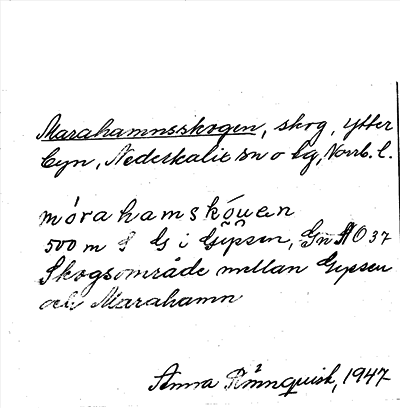 Marahamnsskogen, skog, Ytter
byn, Nederkalix sn o tg, Norrb. l.
móra hamskóuen
500 m S G i Gẽpsen, Gn RO 37
Skogsområde mellan Gepsen
och Marahamn
Anna Rönnquist, 1947